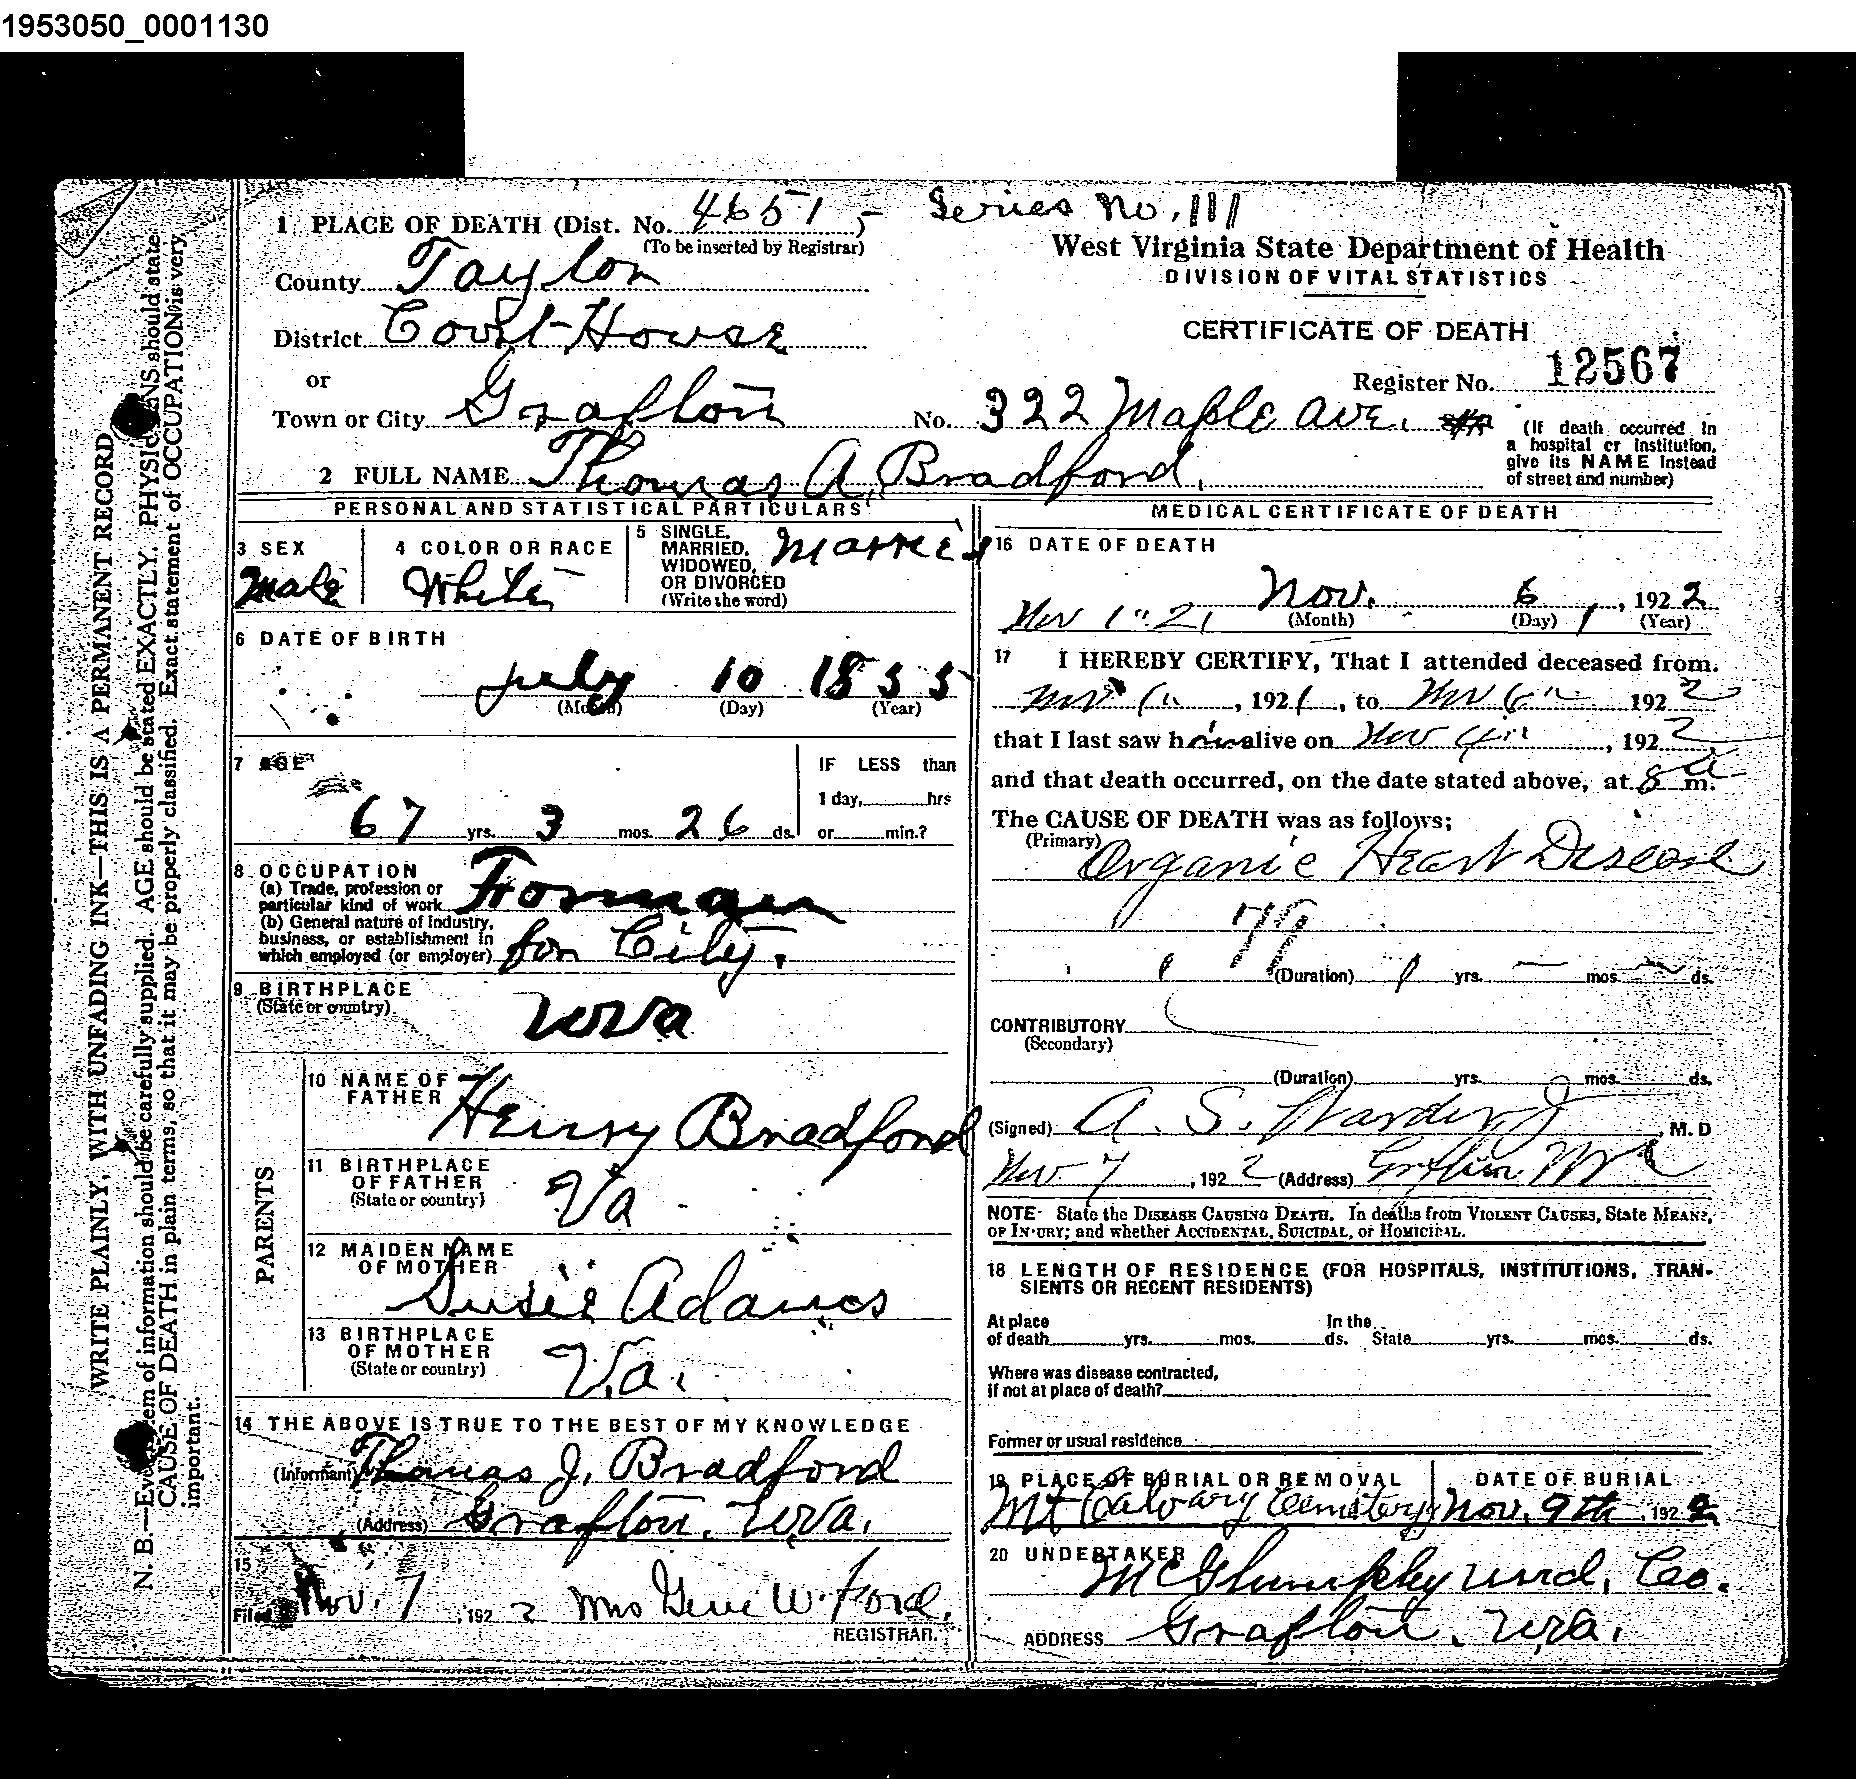 1953050_0001130
1 PLACE OF DEATH (Dist. No. 4651 -
(To be inserted by Registrar)
Series No. 111
County Taylor
West Virginia State Department of Health
DIVISION OF VITAL STATISTICS
District Court House
CERTIFICATE OF DEATH
or
Register No. 12567
Town or City Grafton No. 322 Maple Ave.
(If death occurred in
a hospital or institution,
give its NAME instead
of street and number)
2 FULL NAME Thomas A. Bradford.
PERSONAL AND STATISTICAL PARTICULARS
3 SEX
Male
4 COLOR OR RACE
White
5 SINGLE,
MARRIED,
WIDOWED,
OR DIVORCED
(Write the word)
Married
6 DATE OF BIRTH
July 10 1855
(Month) (Day) (Year)
7 AGE
67 yrs. 3 mos. 26 ds.
IF LESS than
1 day, hrs
or min.?
8 OCCUPATION
(a) Trade, profession or
particular kind of work
Forman
(b) General nature of industry,
business, or establishment in
which employed (or employer)
for City.
9 BIRTHPLACE
(State or country)
W Va
PARENTS
10 NAME OF
FATHER
Henry Bradford
11 BIRTHPLACE
OF FATHER
(State or country)
Va
12 MAIDEN NAME
OF MOTHER
Susie Adams
13 BIRTHPLACE
OF MOTHER
(State or country)
Va.
14 THE ABOVE IS TRUE TO THE BEST OF MY KNOWLEDGE
(Informant) Thomas J. Bradford
(Address) Grafton, W.Va.
15
Filed Nov. 7, 1922 Mrs W. Ford.
REGISTRAR.
MEDICAL CERTIFICATE OF DEATH
16 DATE OF DEATH
Nov. 6, 1922
(Month) (Day) (Year)
Nov 1" 21
17 I HEREBY CERTIFY, That I attended deceased from.
Nov 1", 1921, to Nov 6" 1922
that I last saw him alive on Nov 4", 1922
and that death occurred, on the date stated above, at 8 a m.
The CAUSE OF DEATH was as follows;
(Primary)
Organic Heart Disease
79
(Duration) 1 yrs. — mos — ds.
CONTRIBUTORY
(Secondary)
(Duration) yrs. mos. ds.
(Signed) A. S. Warder, Jr, M. D
Nov 7, 1922 (Address) Grafton W Va
NOTE- State the DISEASE CAUSING DEATH. In deaths from VIOLENT CAUSES, State MEANS
OF INJURY; and whether ACCIDENTAL, SUICIDAL, or HOMICIDAL.
18 LENGTH OF RESIDENCE (FOR HOSPITALS, INSTITUTIONS, TRAN-
SIENTS OR RECENT RESIDENTS)
At place
of death yrs. mos. ds.
In the
State yrs. mos. ds.
Where was disease contracted,
If not at place of death?
Former or usual residence
19 PLACE OF BURIAL OR REMOVAL
Mt Calvary Cemetery
DATE OF BURIAL
Nov. 9th, 1922
20 UNDERTAKER
Und. Co.
ADDRESS Grafton, W.Va.
WRITE PLAINLY, WITH UNFADING INK—THIS IS A PERMANENT RECORD
N. B.—Every item of information should be carefully supplied. AGE should be stated EXACTLY. PHYSICIANS should state
CAUSE OF DEATH in plain terms, so that it may be properly classified. Exact statement of OCCUPATION is very
important.